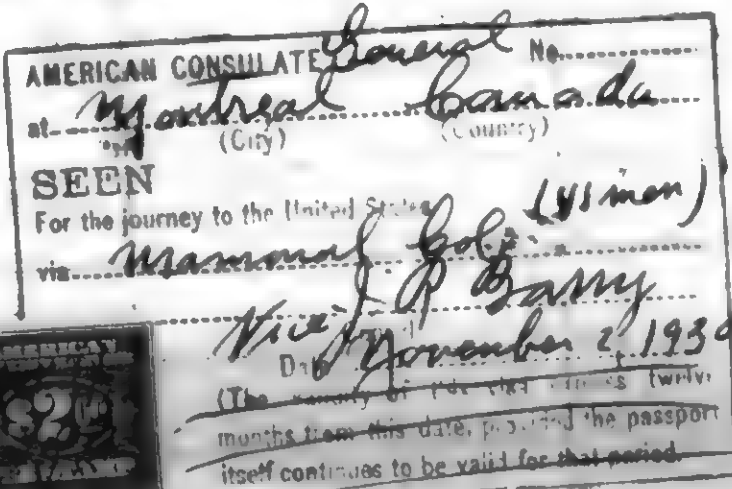 AMERICAN CONSULATE General No.
at Montreal Canada
(City) (Country)
SEEN
For the journey to the United States
via
J P Barry
Vice
Date November 2, 193
(The validity of this visa expires twelve
months from this date, provided the passport
itself continues to be valid for that period.
AMERICAN
$2